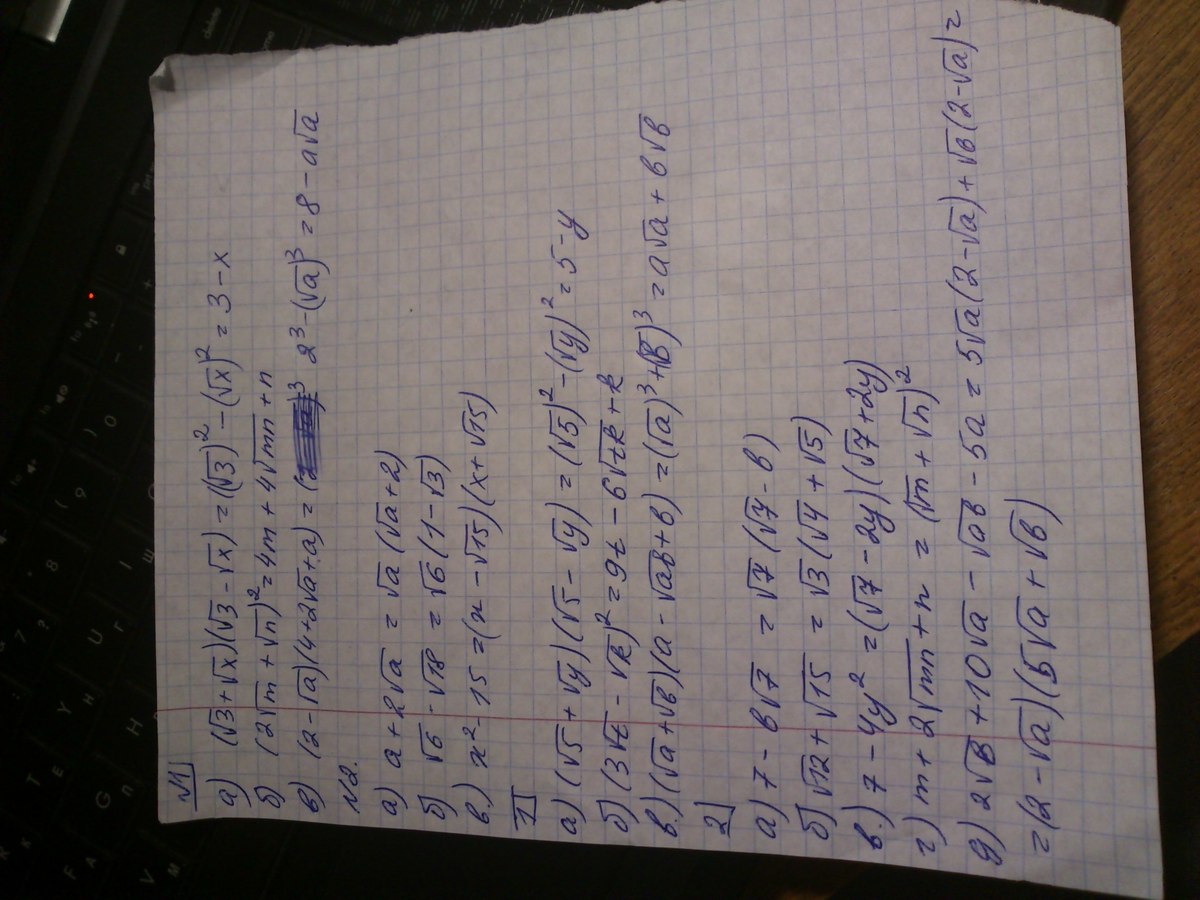 №1
а) (√3+√x)(√3-√x)=(√3)²-(√x)²=3-x
б) (2√m+√n)²=4m+4√mn+n
в) (2-√a)(4+2√a+a)= 2³-(√a)³=8-a√a
№2.
а) a+2√a=√a(√a+2)
б) √6-√18=√6(1-√3)
в.) x²-15=(x-√15)(x+√15)
1
а) (√5+√y)(√5-√y)=(√5)²-(√y)²=5-y
б) (3√t-√k)²=9t-6√tk+k
в.) (√a+√b)(a-√ab+b)=(√a)³+(√b)³=a√a+b√b
2
а) 7-b√7=√7(√7-b)
б) √12+√15=√3(√4+√5)
в.) 7-4y²=(√7-2y)(√7+2y)
г) m+2√mn+n=(√m+√n)²
д) 2√b+10√a-√ab-5a=5√a(2-√a)+√b(2-√a)=
=(2-√a)(5√a+√b)